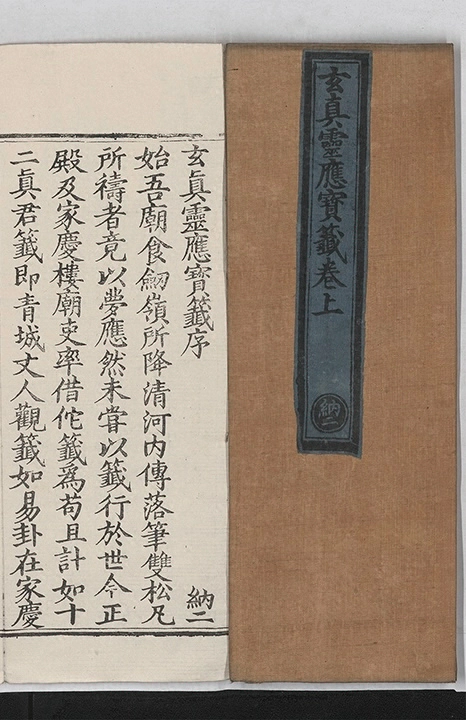 玄真靈應寶籖卷上
納二
玄眞靈應寶籖序
納二
始吾廟食劒嶺所降清河內傳落筆雙松凡
所禱者竟以夢應然未甞以籖行於世今正
殿及家慶樓廟吏率借佗籖爲苟且計如十
二眞君籖即青城丈人觀籖如易卦在家慶